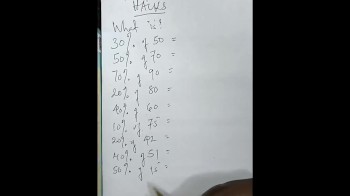 HACKS
What is?
30% of 50 =
50% of 70 =
70% of 90 =
20% of 80 =
40% of 60 =
10% of 75 =
20% of 42 =
40% of 51 =
50% of 15 =